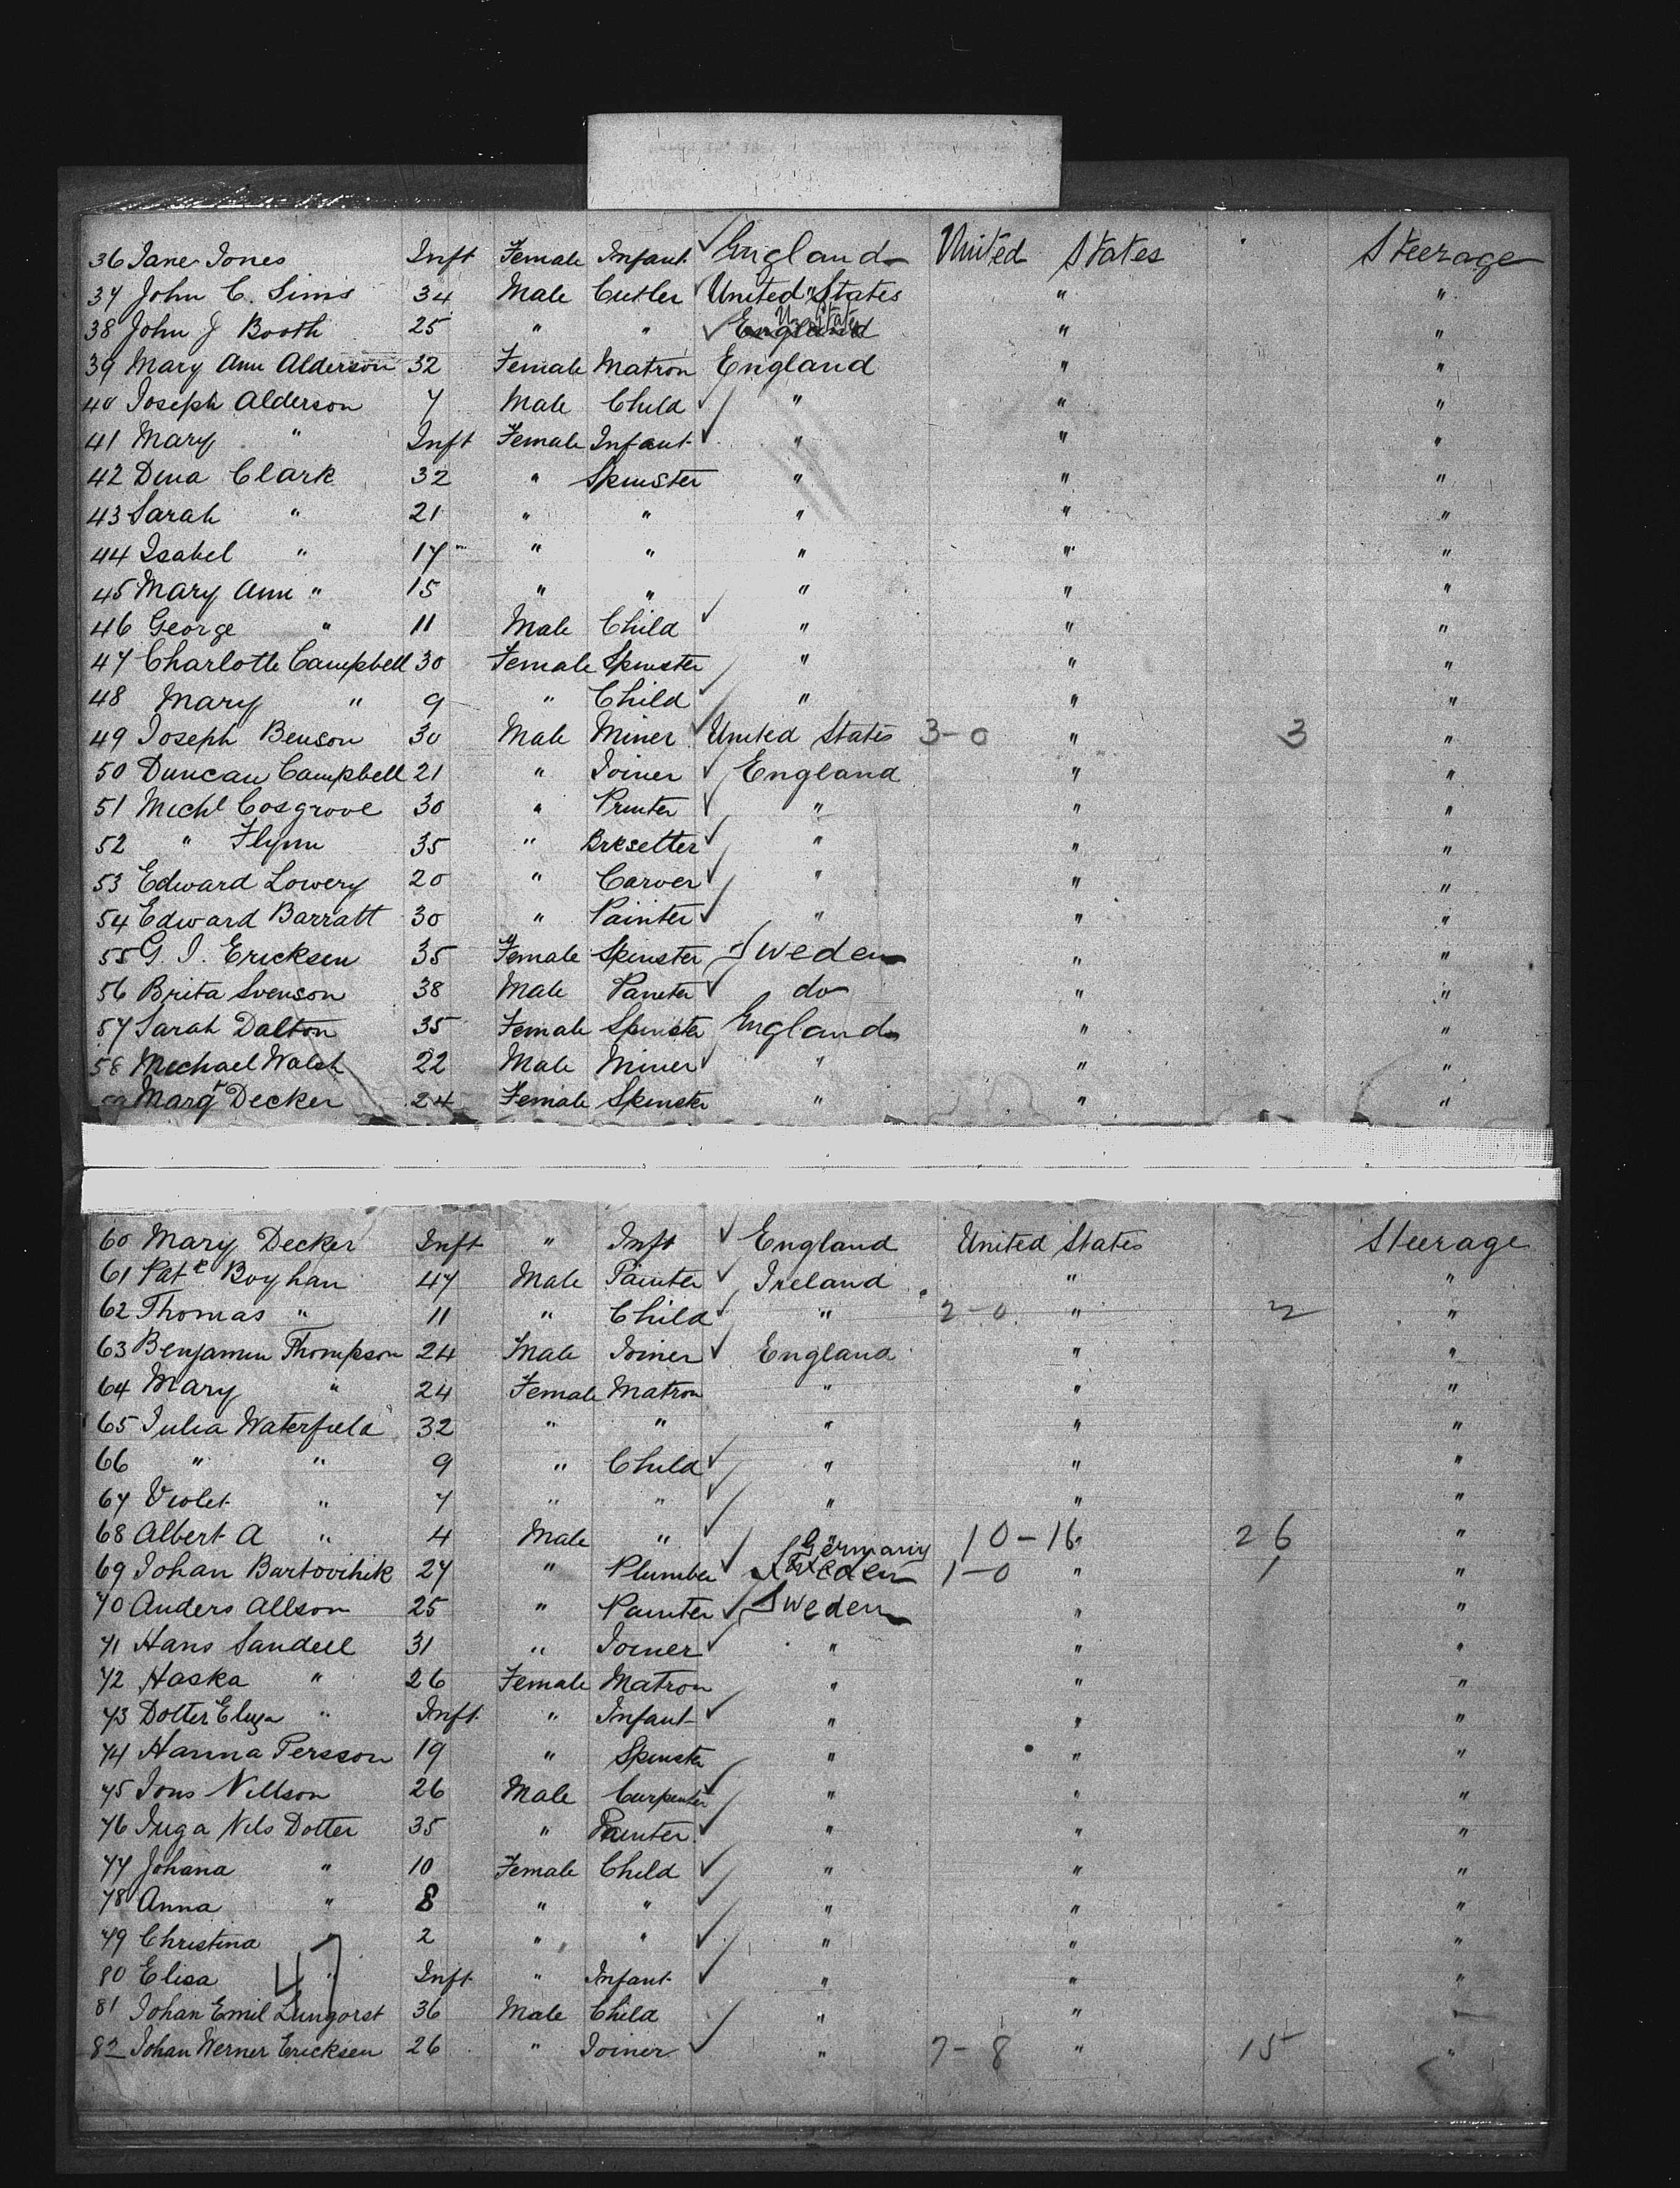 36 Jane Jones Inft Female Infant England United States Steerage
37 John C. Sims 34 Male Cutler United States " "
38 John J Booth 25 " " England U. States " "
39 Mary Ann Alderson 32 Female Matron England " "
40 Joseph Alderson 7 Male Child " " "
41 Mary " Inft Female Infant " " "
42 Dina Clark 32 " Spinster " " "
43 Sarah " 21 " " " " "
44 Isabel " 17 " " " " "
45 Mary Ann " 15 " " " " "
46 George " 11 Male Child " " "
47 Charlotte Campbell 30 Female Spinster " " "
48 Mary " 9 " Child " " "
49 Joseph Benson 30 Male Miner United States 3-0 " 3 "
50 Duncan Campbell 21 " Joiner England " "
51 Michl Cosgrove 30 " Printer " " "
52 " Flynn 35 " Brksetter " " "
53 Edward Lowery 20 " Carver " " "
54 Edward Barratt 30 " Painter " " "
55 G. J. Ericksen 35 Female Spinster Sweden " "
56 Brita Svenson 38 Male Painter do " "
57 Sarah Dalton 35 Female Spinster England " "
58 Michael Walsh 22 Male Miner " " "
59 Margt Decker 24 Female Spinster " " "
60 Mary Decker Inft " Inft England United States Steerage
61 Patk Boyhan 47 Male Painter Ireland " "
62 Thomas " 11 " Child " 2-0 " 2 "
63 Benjamin Thompson 24 Male Joiner England " "
64 Mary " 24 Female Matron " " "
65 Julia Waterfield 32 " " " " "
66 " " 9 " Child " " "
67 Violet " 7 " " " " "
68 Albert A " 4 Male " " 10-16 " 26 "
69 Johan Bartovihik 27 " Plumber Sweden Germany 1-0 " 1 "
70 Anders Allson 25 " Painter Sweden " "
71 Hans Sandell 31 " Joiner " " "
72 Haska " 26 Female Matron " " "
73 Dotter Eliza " Inft " Infant " " "
74 Hanna Persson 19 " Spinster " " "
75 Jons Nillson 26 Male Carpenter " " "
76 Inga Nils Dotter 35 " Painter " " "
77 Johana " 10 Female Child " " "
78 Anna " 8 " " " " "
79 Christina " 2 " " " " "
80 Elisa " Inft " Infant " " "
47
81 Johan Emil Lungorst 36 Male Child " " "
82 Johan Werner Ericksen 26 " Joiner " 7-8 " 15 "